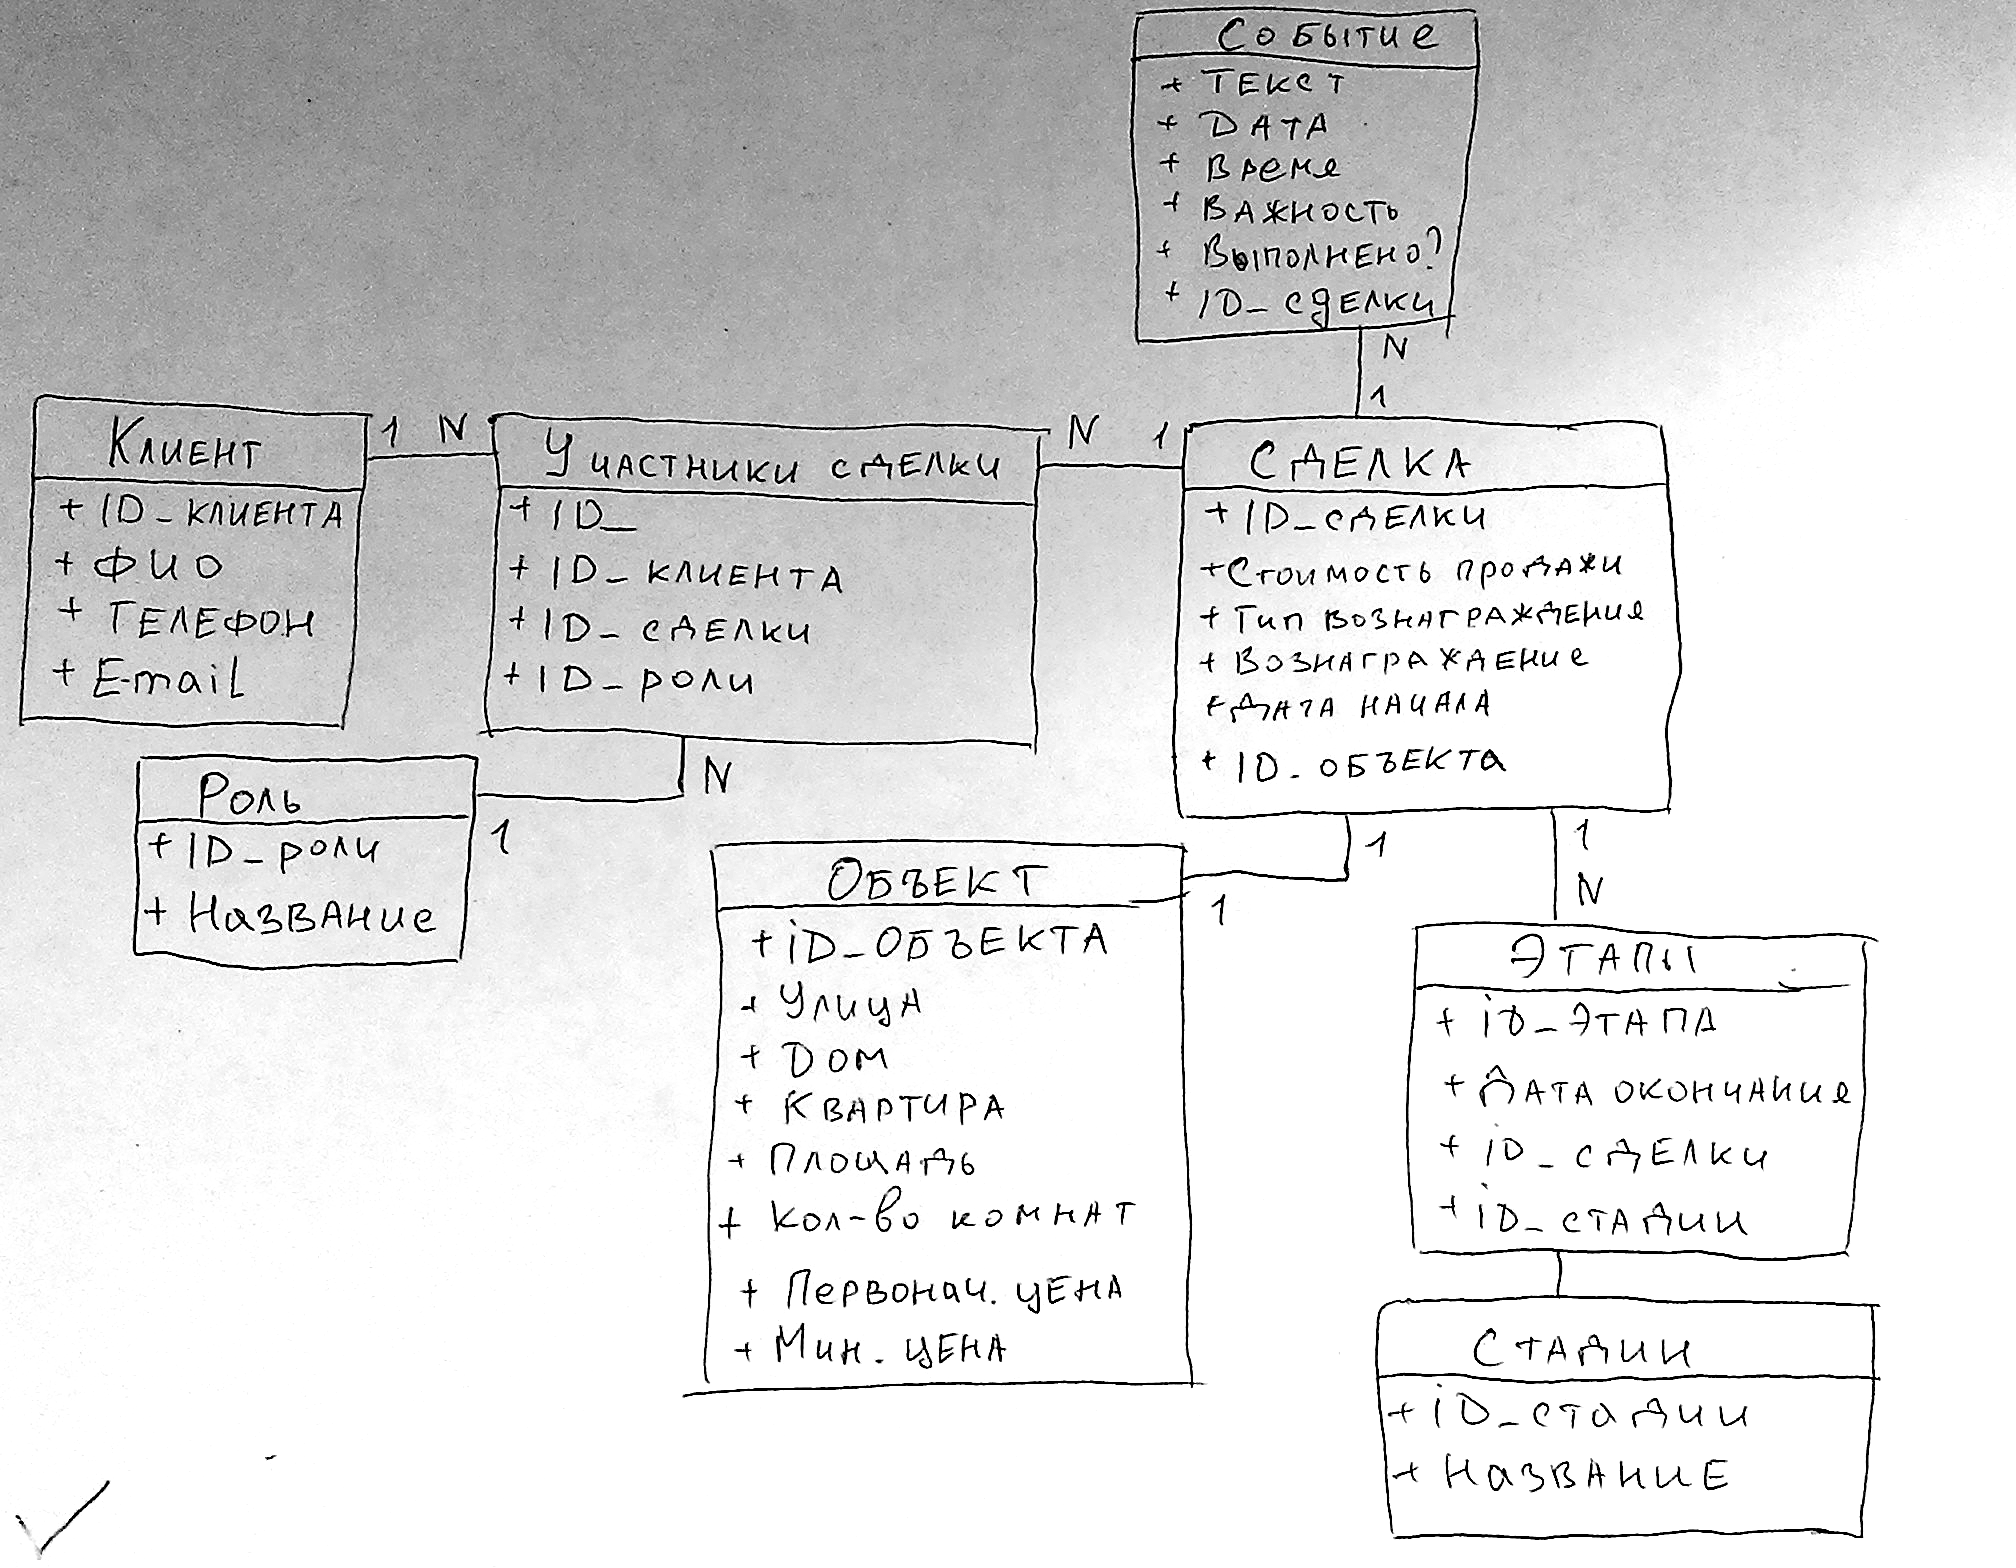 Событие
+ Текст
+ Дата
+ Время
+ Важность
+ Выполнено?
+ ID_сделки
N
1
Клиент
+ ID_клиента
+ ФИО
+ Телефон
+ E-mail
1 N
Участники сделки
+ ID_
+ ID_клиента
+ ID_сделки
+ ID_роли
N 1
Сделка
+ ID_сделки
+ Стоимость продажи
+ Тип вознаграждения
+ Вознаграждение
+ Дата начала
+ ID_объекта
N
1
Роль
+ ID_роли
+ Название
1
1
Объект
+ iD_объекта
+ Улица
+ Дом
+ Квартира
+ Площадь
+ Кол-во комнат
+ Первонач. цена
+ Мин. цена
1
N
Этапы
+ iD_этапа
+ Дата окончания
+ iD_сделки
+ iD_стадии
Стадии
+ iD_стадии
+ Название